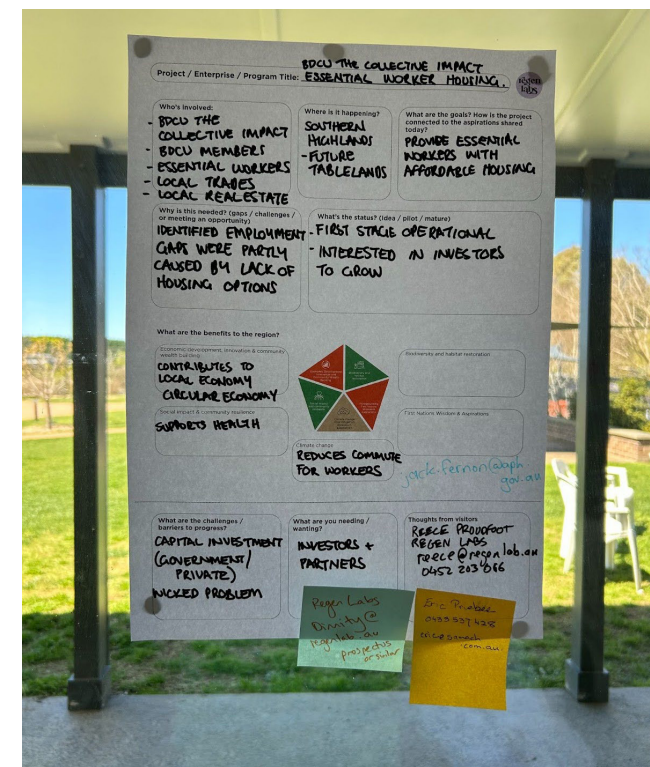 BDCU THE COLLECTIVE IMPACT
Project / Enterprise / Program Title: ESSENTIAL WORKER HOUSING.
regen
labs
Who's involved:
- BDCU THE
COLLECTIVE IMPACT
- BDCU MEMBERS
- ESSENTIAL WORKERS
- LOCAL TRADES
- LOCAL REAL ESTATE
Where is it happening?
SOUTHERN
HIGHLANDS
- FUTURE
TABLELANDS
What are the goals? How is the project
connected to the aspirations shared
today?
PROVIDE ESSENTIAL
WORKERS WITH
AFFORDABLE HOUSING
Why is this needed? (gaps / challenges /
or meeting an opportunity)
IDENTIFIED EMPLOYMENT
GAPS WERE PARTLY
CAUSED BY LACK OF
HOUSING OPTIONS
What's the status? (idea / pilot / mature)
- FIRST STAGE OPERATIONAL
- INTERESTED IN INVESTORS
TO GROW
What are the benefits to the region?
Economic development, innovation & community
wealth building
CONTRIBUTES TO
LOCAL ECONOMY
CIRCULAR ECONOMY
Biodiversity and habitat restoration
Social impact & community resilience
SUPPORTS HEALTH
First Nations Wisdom & Aspirations
Climate change
REDUCES COMMUTE
FOR WORKERS
jack.fernon@aph
gov.au
What are the challenges /
barriers to progress?
CAPITAL INVESTMENT
(GOVERNMENT/
PRIVATE)
WICKED PROBLEM
What are you needing /
wanting?
INVESTORS +
PARTNERS
Thoughts from visitors
REECE PROUDFOOT
REGEN LABS
reece@regenlab.au
0452 203 066
Regen Labs
Dimity@
regenlab.au
prospectus
or similar
Eric
com.au.